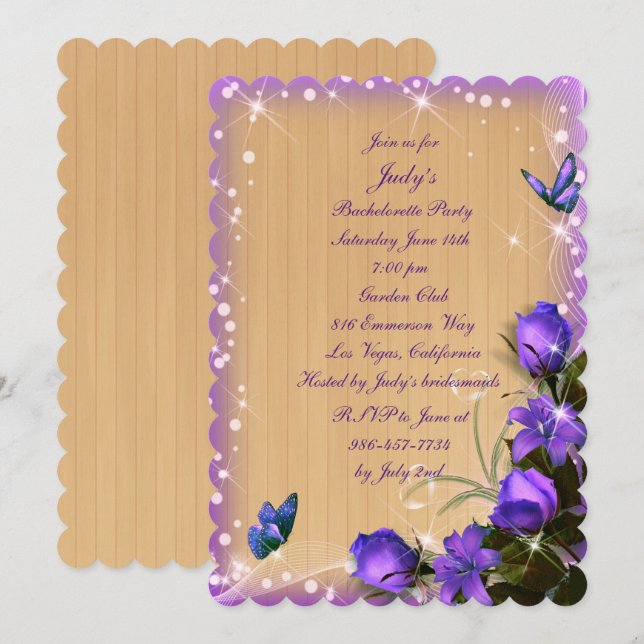 Join us for
Judy's
Bachelorette Party
Saturday June 14th
7:00 pm
Garden Club
816 Emmerson Way
Los Vegas, California
Hosted by Judy's bridesmaids
RSVP to Jane at
986-457-7734
by July 2nd